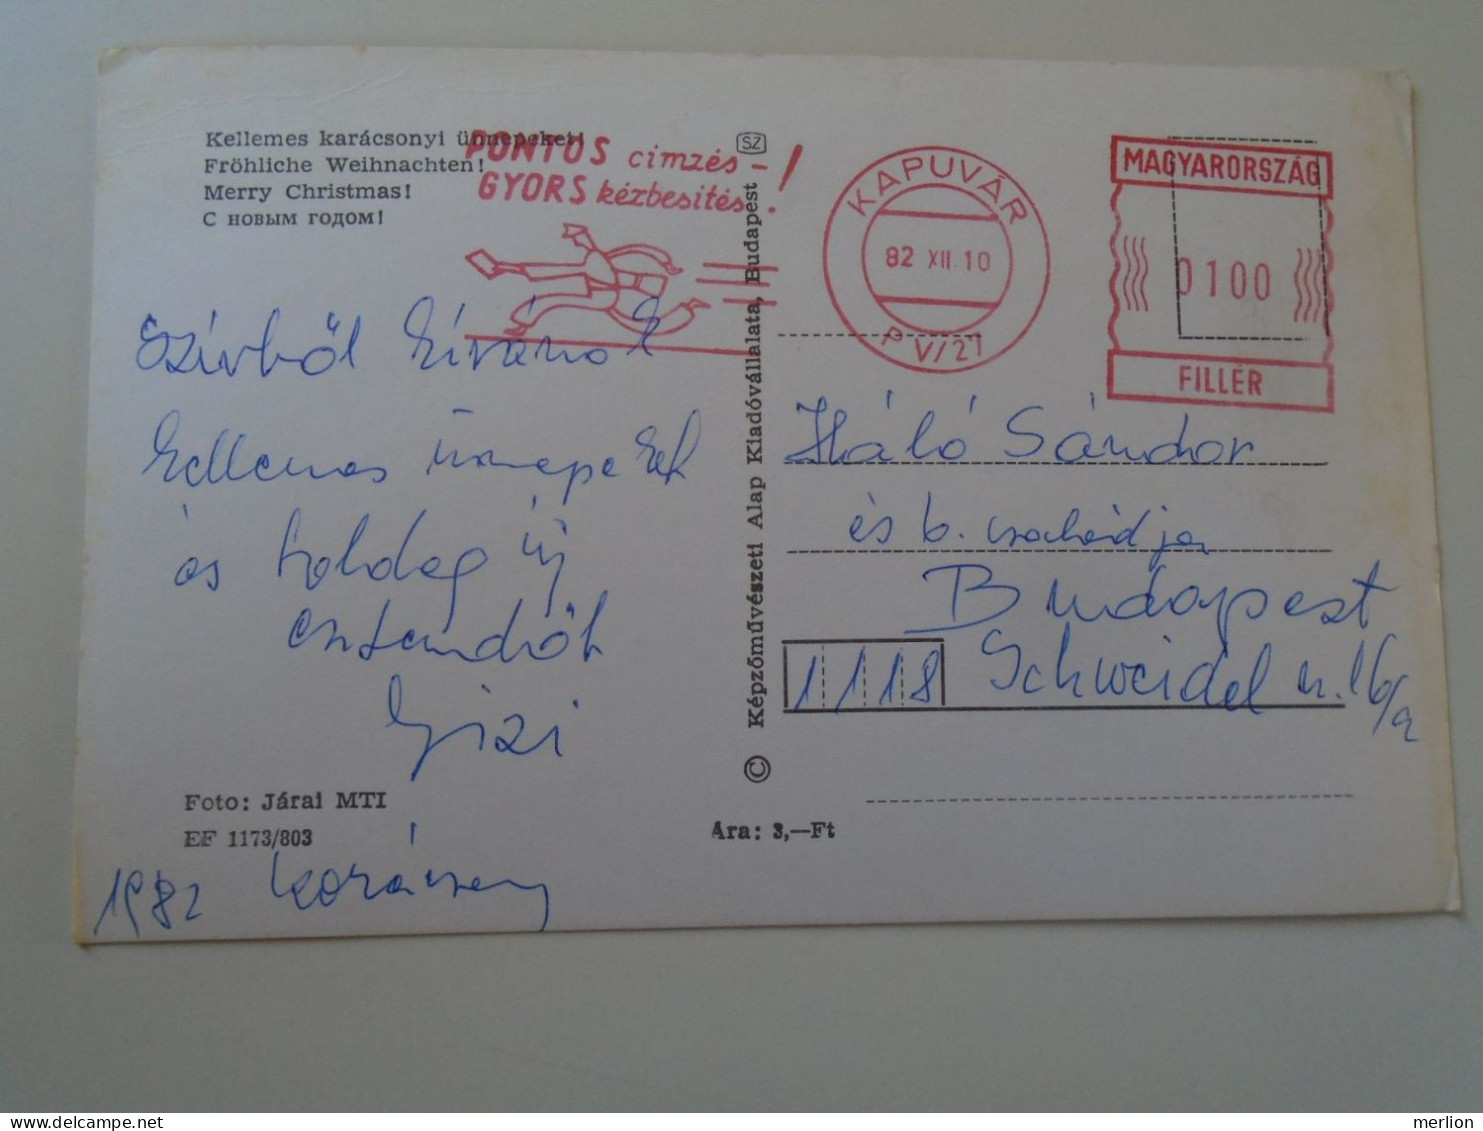 Kellemes karácsonyi ünnepeket!
Fröhliche Weihnachten!
Merry Christmas!
С новым годом!
PONTOS címzés -
GYORS kézbesítés !
SZ
KAPUVÁR
82 XII. 10
P V/21
MAGYARORSZÁG
0100
FILLÉR
Szívből kívánok
kellemes ünnepeket
és boldog új
esztendőt
Gizi
Foto: Járai MTI
EF 1173/803
1982 karácsony
© Képzőművészeti Alap Kiadóvállalata, Budapest
Ára: 3,—Ft
Háló Sándor
és b. családja
Budapest
1118 Schweidel u. 16/a
merlion